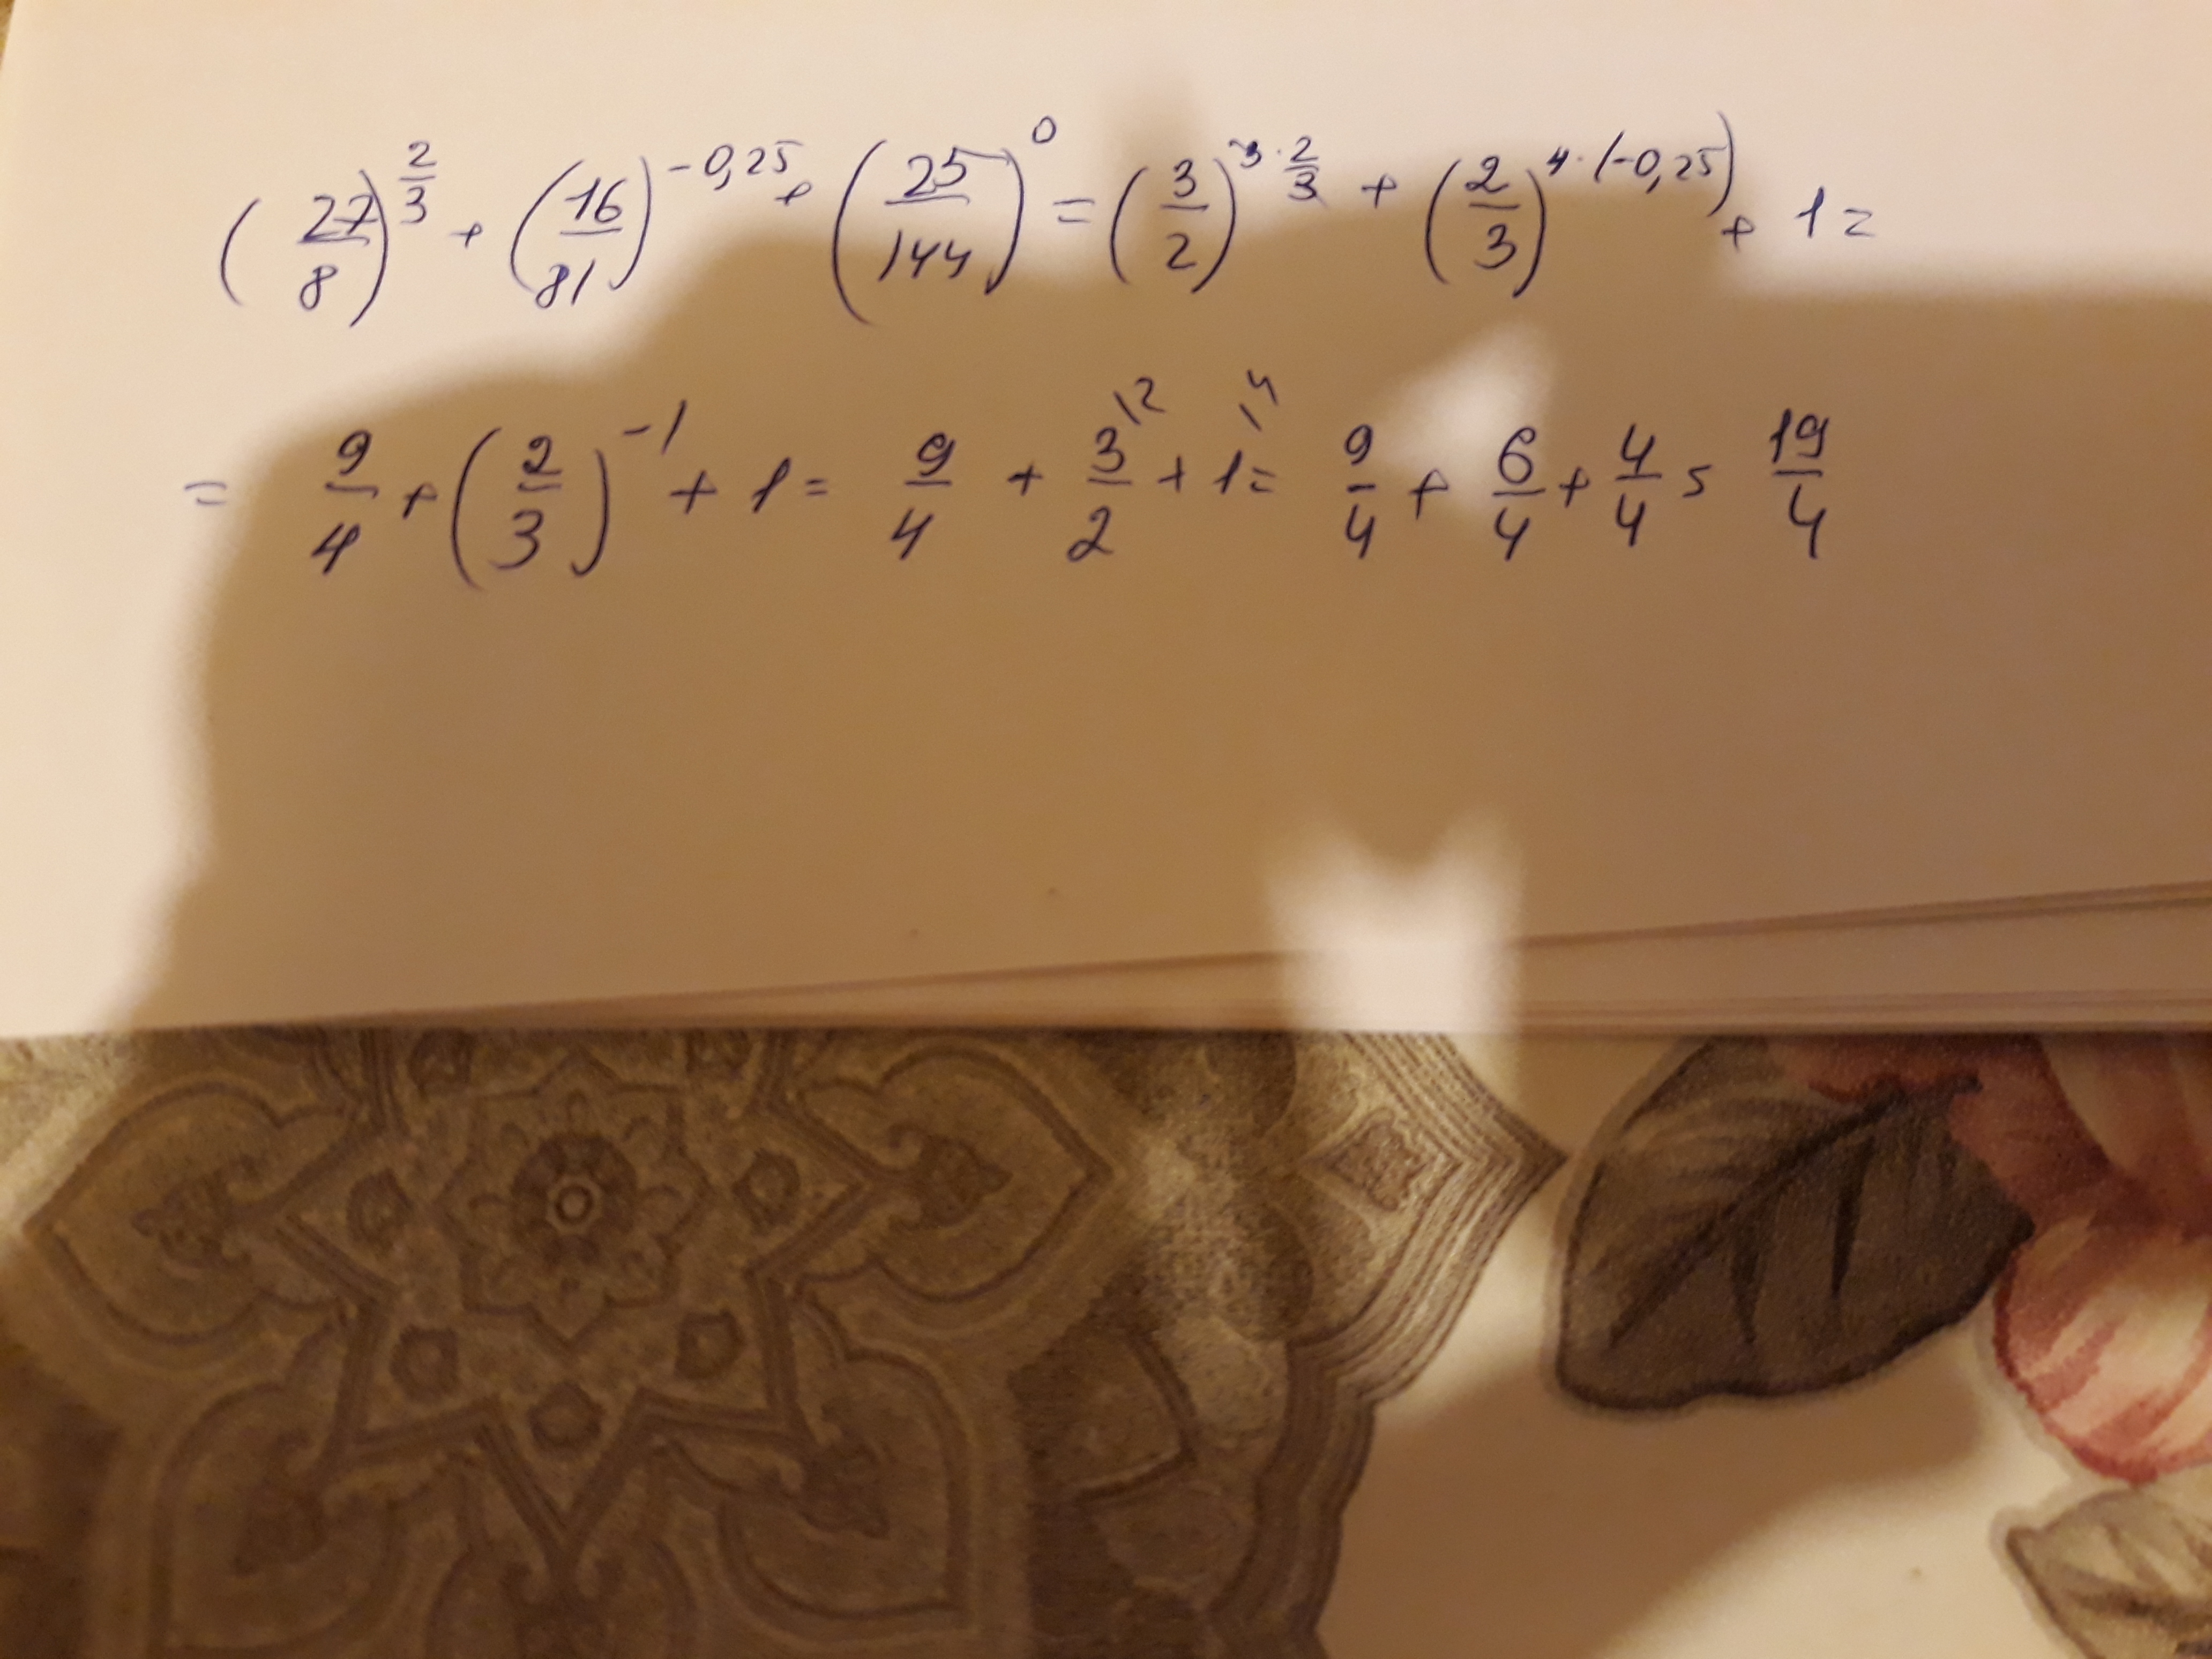 (27/8)^(2/3) + (16/81)^(-0,25) + (25/144)^0 = (3/2)^(3·2/3) + (2/3)^(4·(-0,25)) + 1 =
= 9/4 + (2/3)^(-1) + 1 = 9/4 + 3\2/2 + 1\4 = 9/4 + 6/4 + 4/4 = 19/4